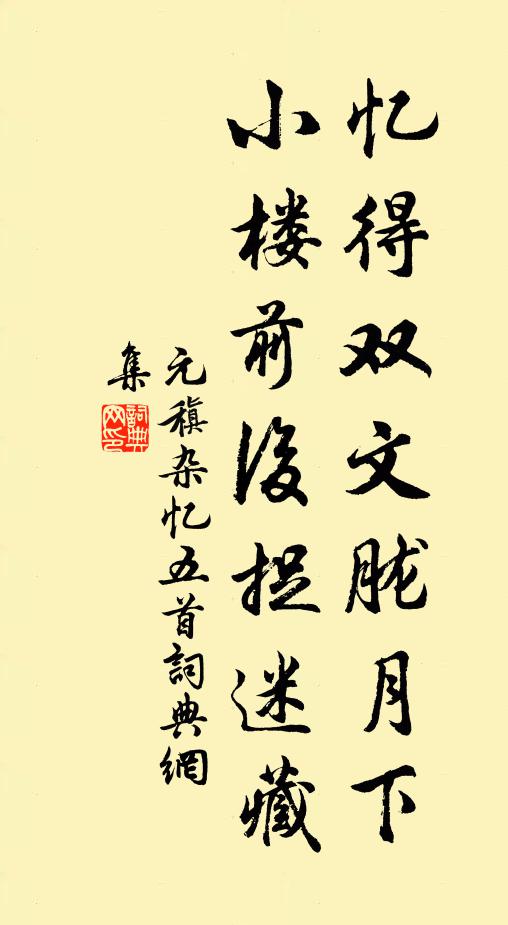 忆得双文胧月下
小楼前后捉迷藏
元稹杂忆五首詞典網
集
詞典
网印